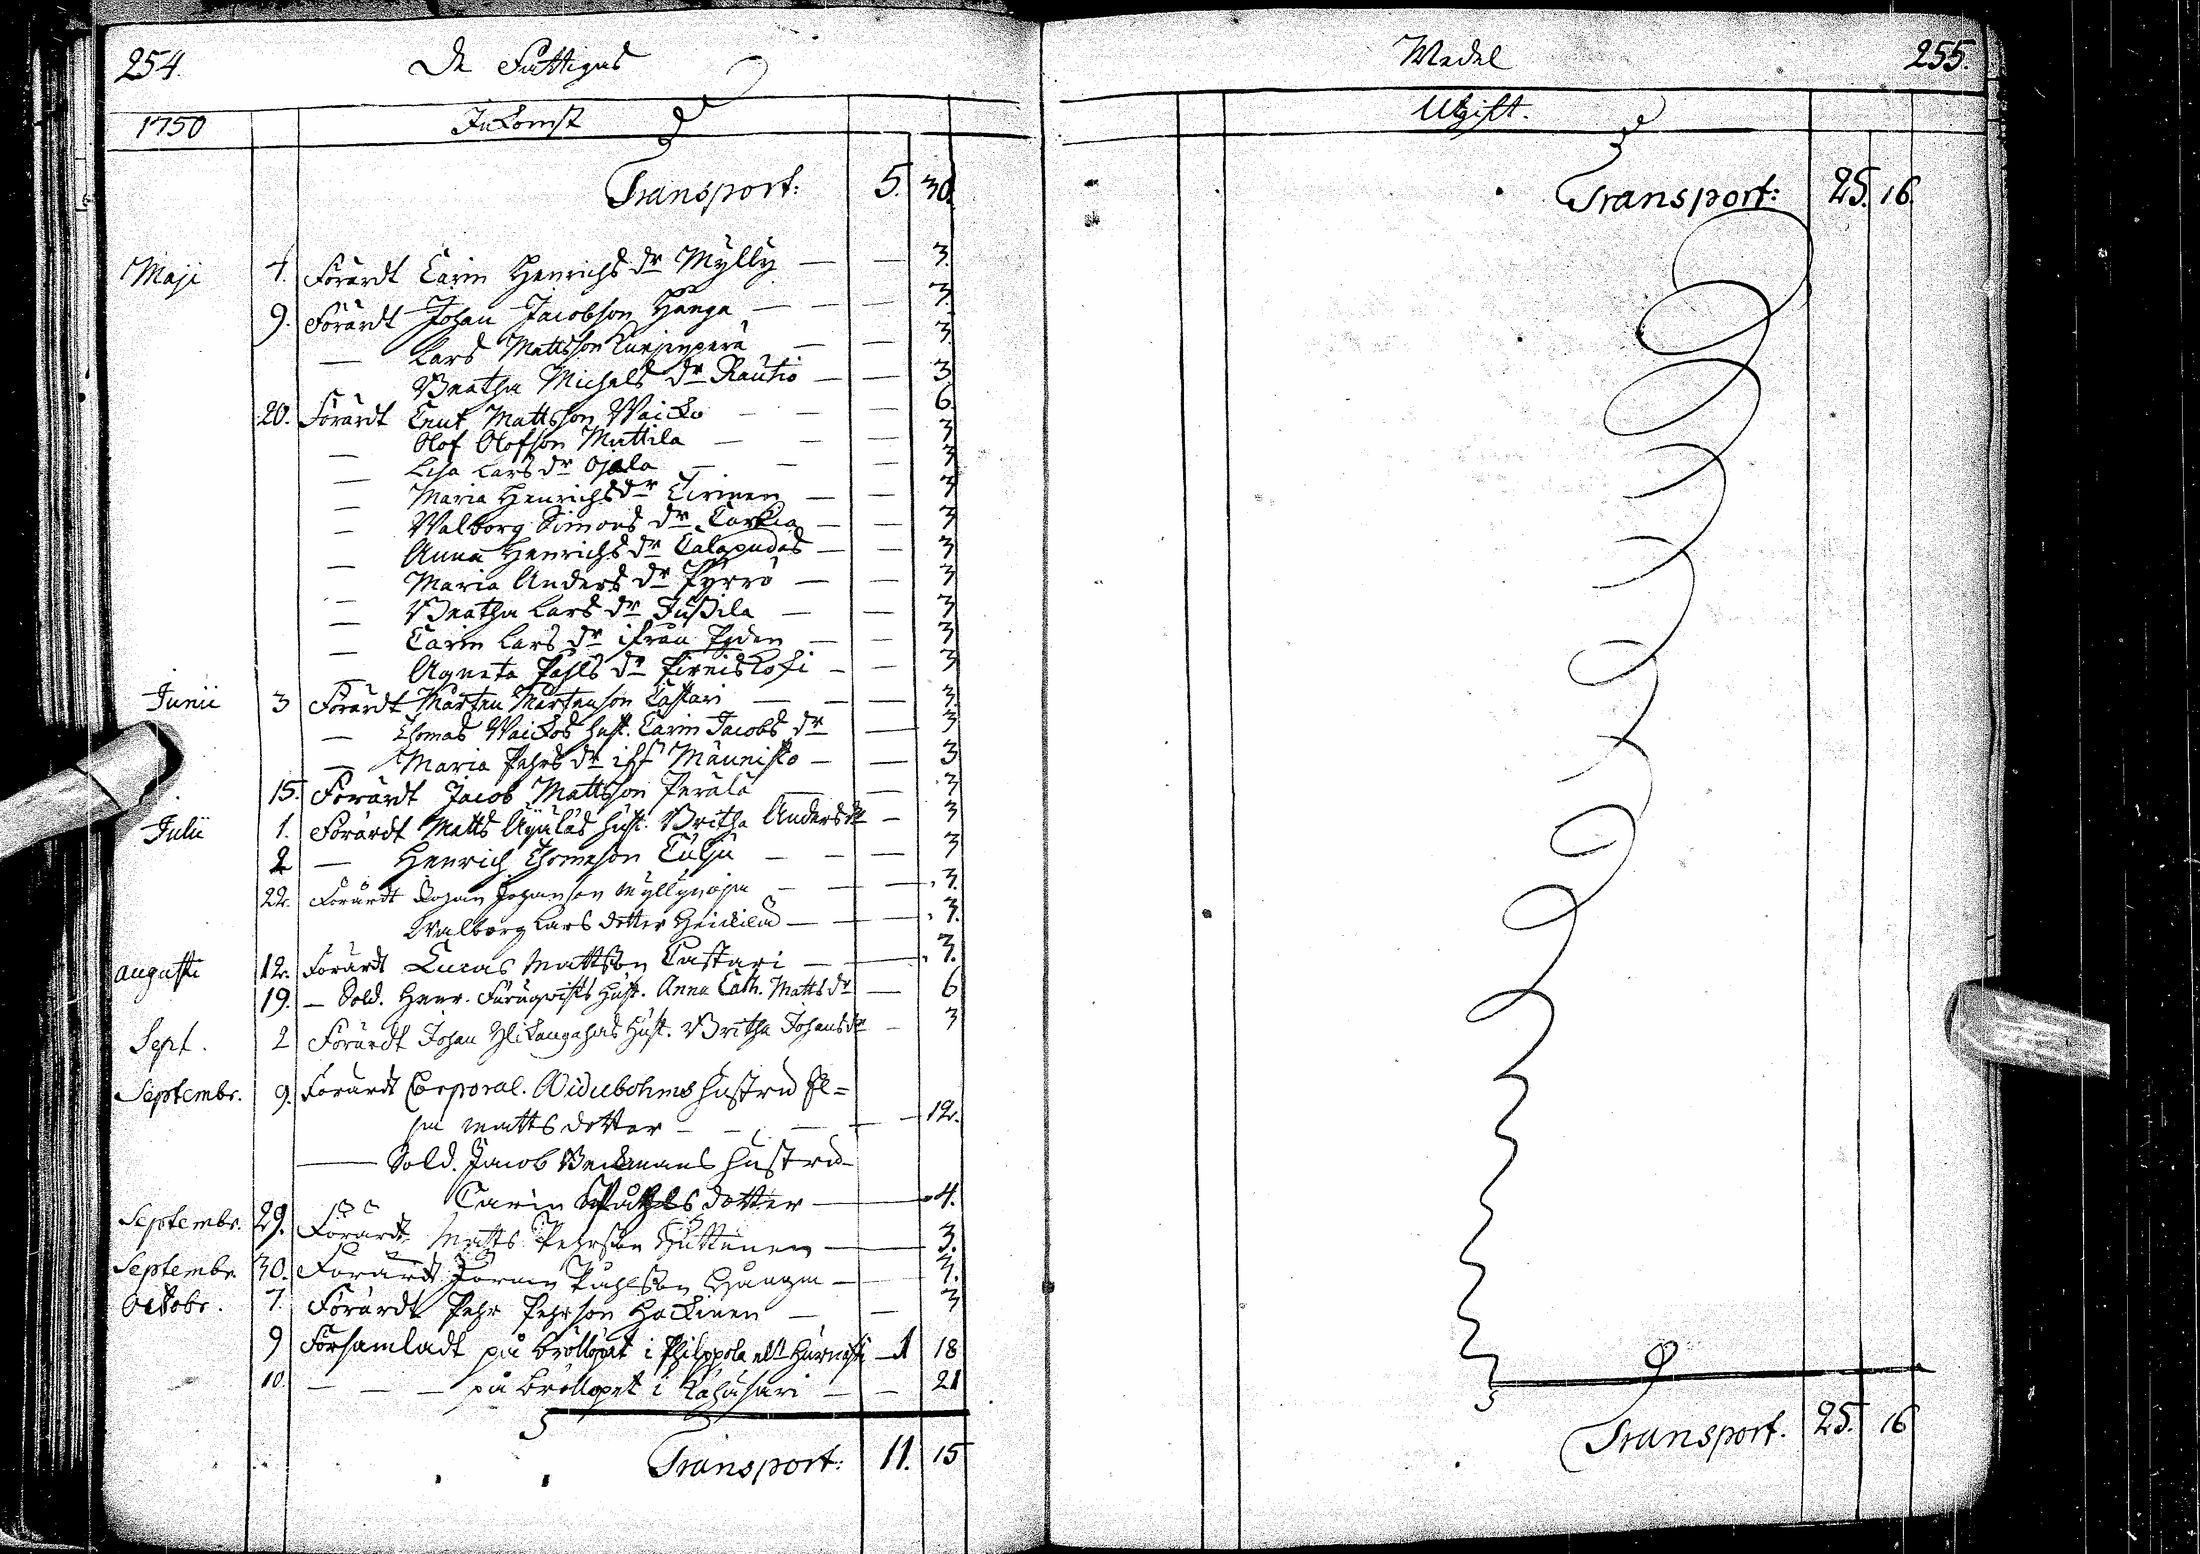 254.
De Fattigas
1750
Inkomst
Transport: 5. 30.
Maji 4. Förärdt Carin Henrichs dr Mylly — — 3.
9. Förärdt Johan Jacobson Hanga — — — 3
— Lars Mattsson — — 3
Beatha Michels dr Rautio — — 3
20. Förärdt Cnut Mattsson Waicko — — — 6.
— Olof Olofson Mattila — — — 3
— Lisa Lars dr Ojala — — — 3
— Maria Henrichs dr — — 3
— Walborg Simons dr — — 3
— Anna Henrichs dr Calapudas — — 3
— Maria Anders dr Pyrrö — — 3
— Beatha Lars dr Jussila — — 3
— Carin Lars dr ifrån — — 3
— Agneta Påhls dr — — 3
Junii 3 Förärdt Mårten Mårtenson Castari — — — 3.
— Thomas Waickos hust. Carin Jacobs dr — 3
— Maria Pehrs dr Männikö — — 3
15. Förärdt Jacob Mattsson Perälä — — 3
Julii 1. Förärdt Matts Äyräläs hust. Britha Anders dr — 3
2 — Henrich Thomeson — — — 3
22. Förärdt Johan Johanson Myllyoja — — — 3.
Walborg Lars dotter Heickilä — — 3.
augusti 12. Förärdt Lucas Mattson Castari — — 3.
19. — Sold. Henr. hust. Anna Cath. Matts dr — 6
Sept. 2 Förärdt Johan Ylikangahas hust. Britha Johans dr — 3
Septembr. 9. Förärdt Corporal. Widebohms hustru El=
sa Matts dotter — — — — 12.
— Sold. Jacob Beckmans hustru
Carin dotter — 4.
Septembr. 29. Förärdt Matts Pehrson Huttunen — 3.
Septembr. 30. Förärdt Påhlson — — 3.
Octobr. 7. Förärdt Pehr Pehrson Hackinen — — 3
9 Församladt på bröllopet i Philppola — 1 18
10. — — — på bröllopet i — — 21
Transport: 11. 15
Medel
255.
Utgift.
Transport: 25. 16.
Transport. 25. 16